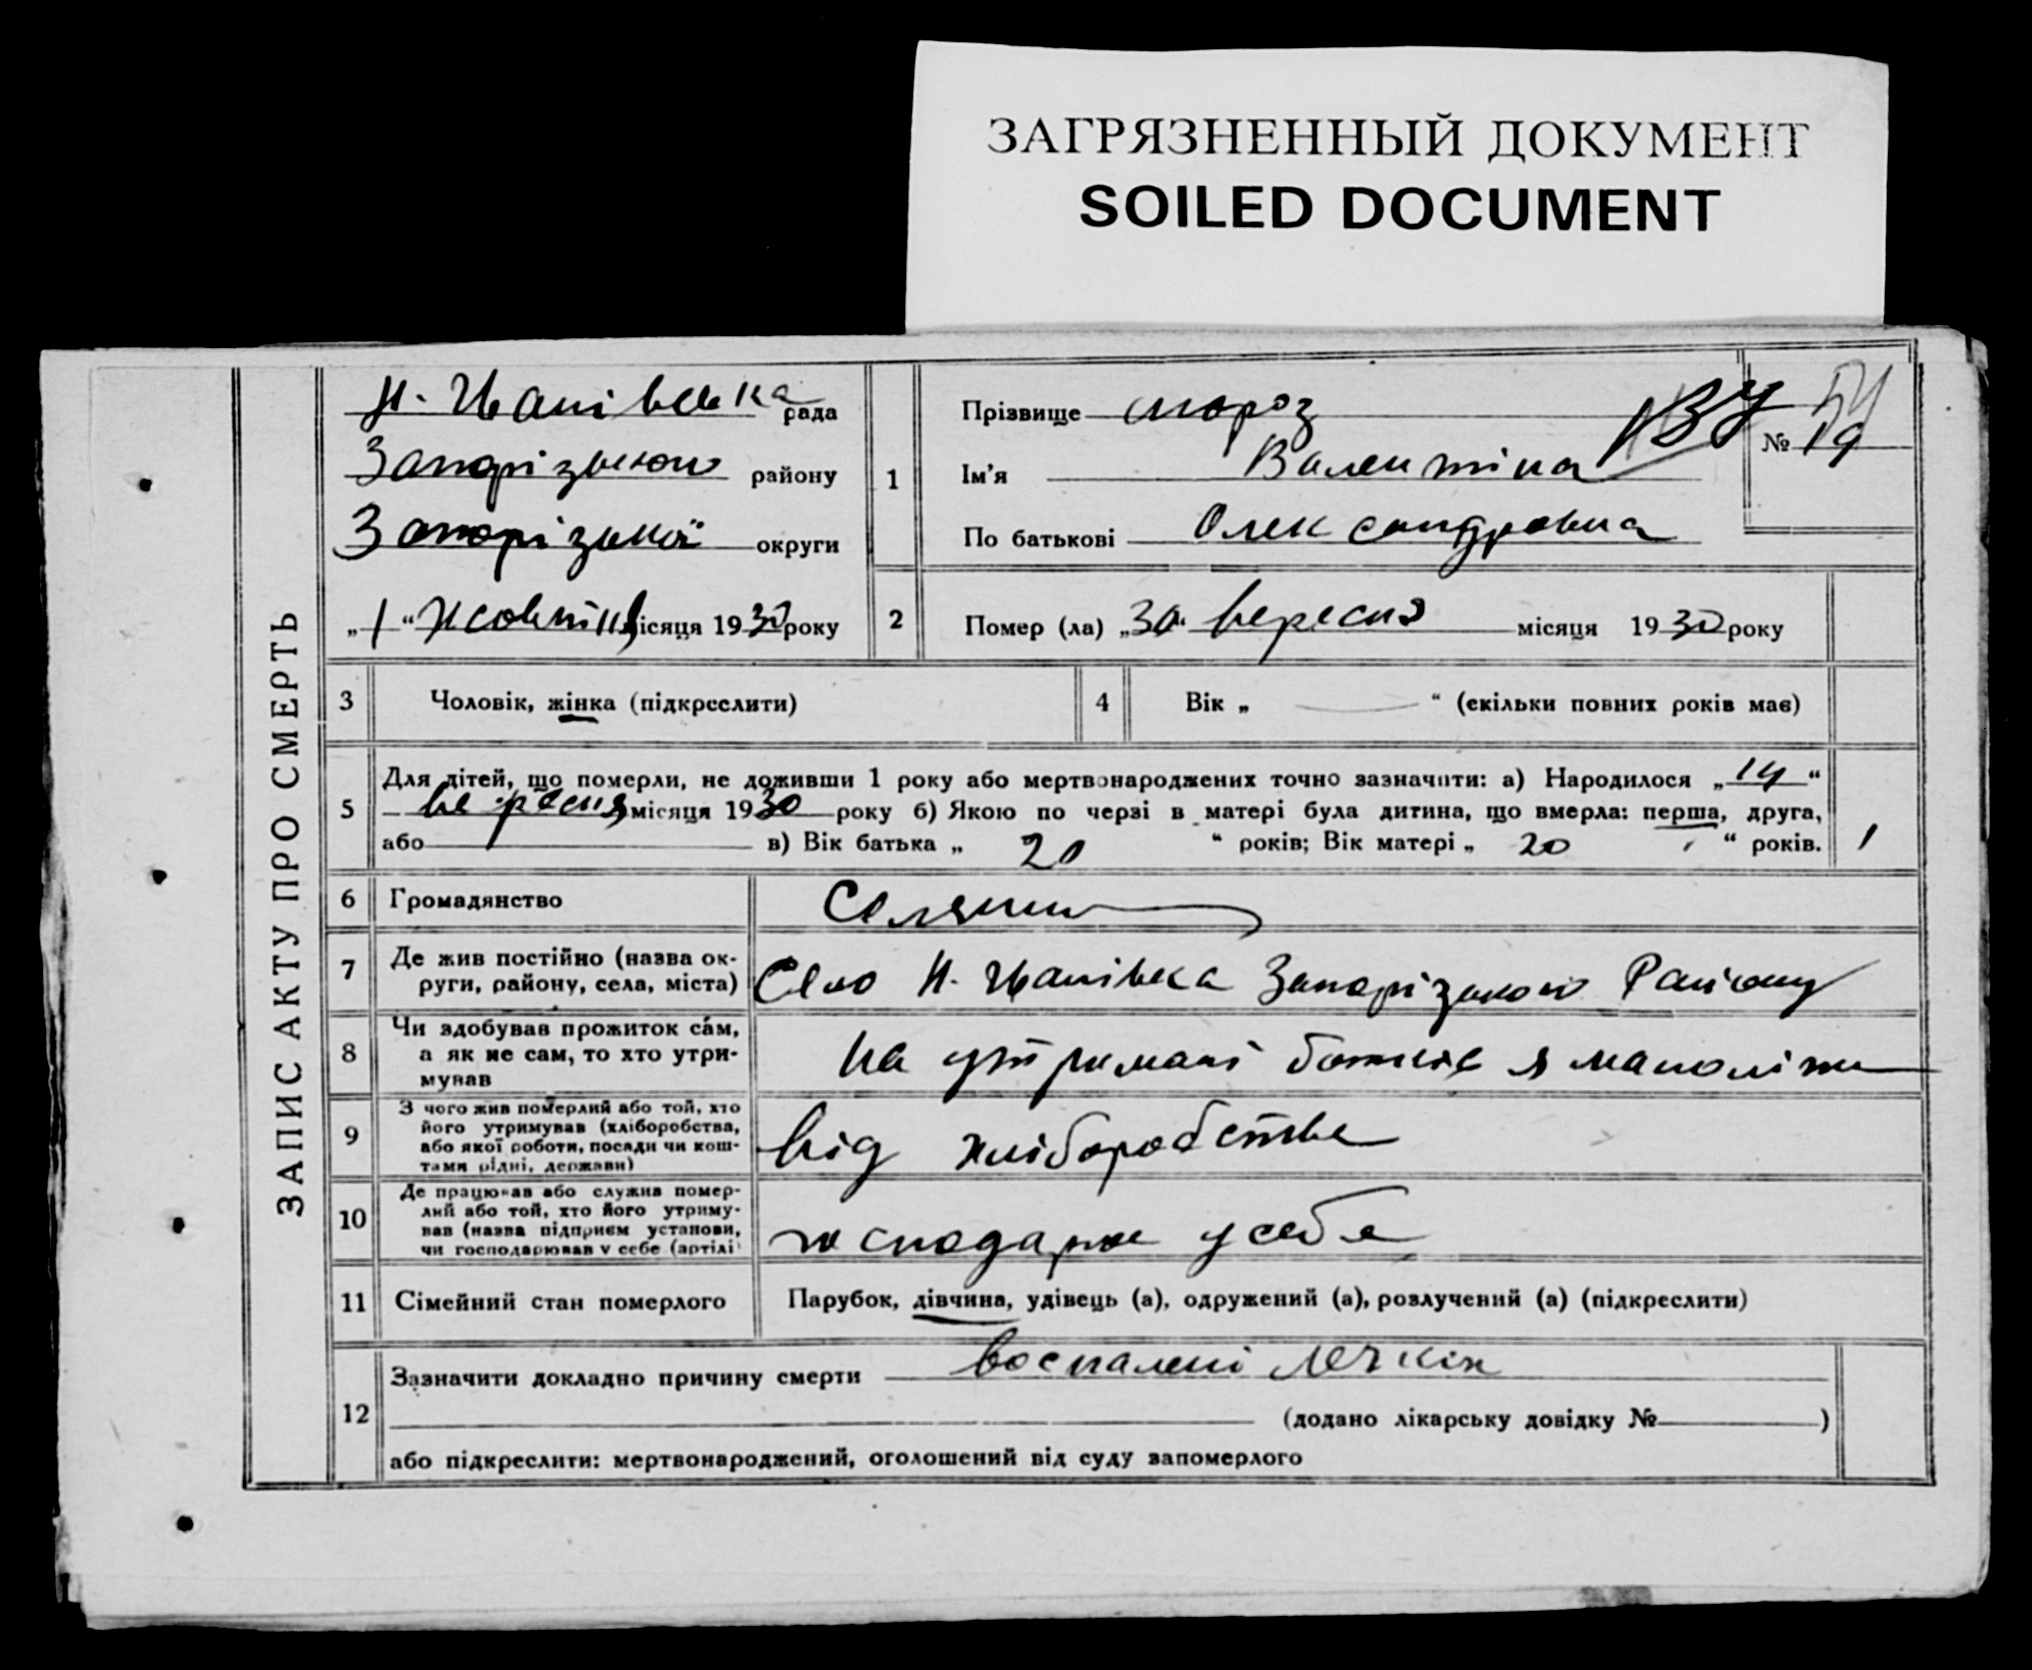 ЗАГРЯЗНЕННЫЙ ДОКУМЕНТ
SOILED DOCUMENT
ЗАПИС АКТУ ПРО СМЕРТЬ
рада
Запорізького району
Запорізької округи
„1“ Жовтня місяця 1930 року
1
Прізвище Мороз
Ім'я Валентіна
По батькові Олександровна
№ 19
2
Помер (ла) „30“ вересня місяця 1930 року
3 Чоловік, жінка (підкреслити)
4 Вік „ — “ (скільки повних років має)
5 Для дітей, що померли, не доживши 1 року або мертвонароджених точно зазначити: а) Народилося „14“
вересня місяця 1930 року б) Якою по черзі в матері була дитина, що вмерла: перша, друга,
або в) Вік батька „ 20 “ років; Вік матері „ 20 “ років. 1
6 Громадянство Селянин
7 Де жив постійно (назва округи, району, села, міста)
Село Н. Запорізького Району
8 Чи здобував прожиток сам,
а як не сам, то хто утри-
мував
на утримані батька
9 З чого жив померлий або той, хто
його утримував (хліборобства,
або якої роботи, посади чи кош-
тами рідні, держави)
від хліборобства
10 Де працював або служив помер-
лий або той, хто його утриму-
вав (назва підприєм установи,
чи господарював у себе (артілі
господарює у себе
11 Сімейний стан померлого Парубок, дівчина, удівець (а), одружений (а), розлучений (а) (підкреслити)
12 Зазначити докладно причину смерти воспалені легких
(додано лікарську довідку № )
або підкреслити: мертвонароджений, оголошений від суду запомерлого